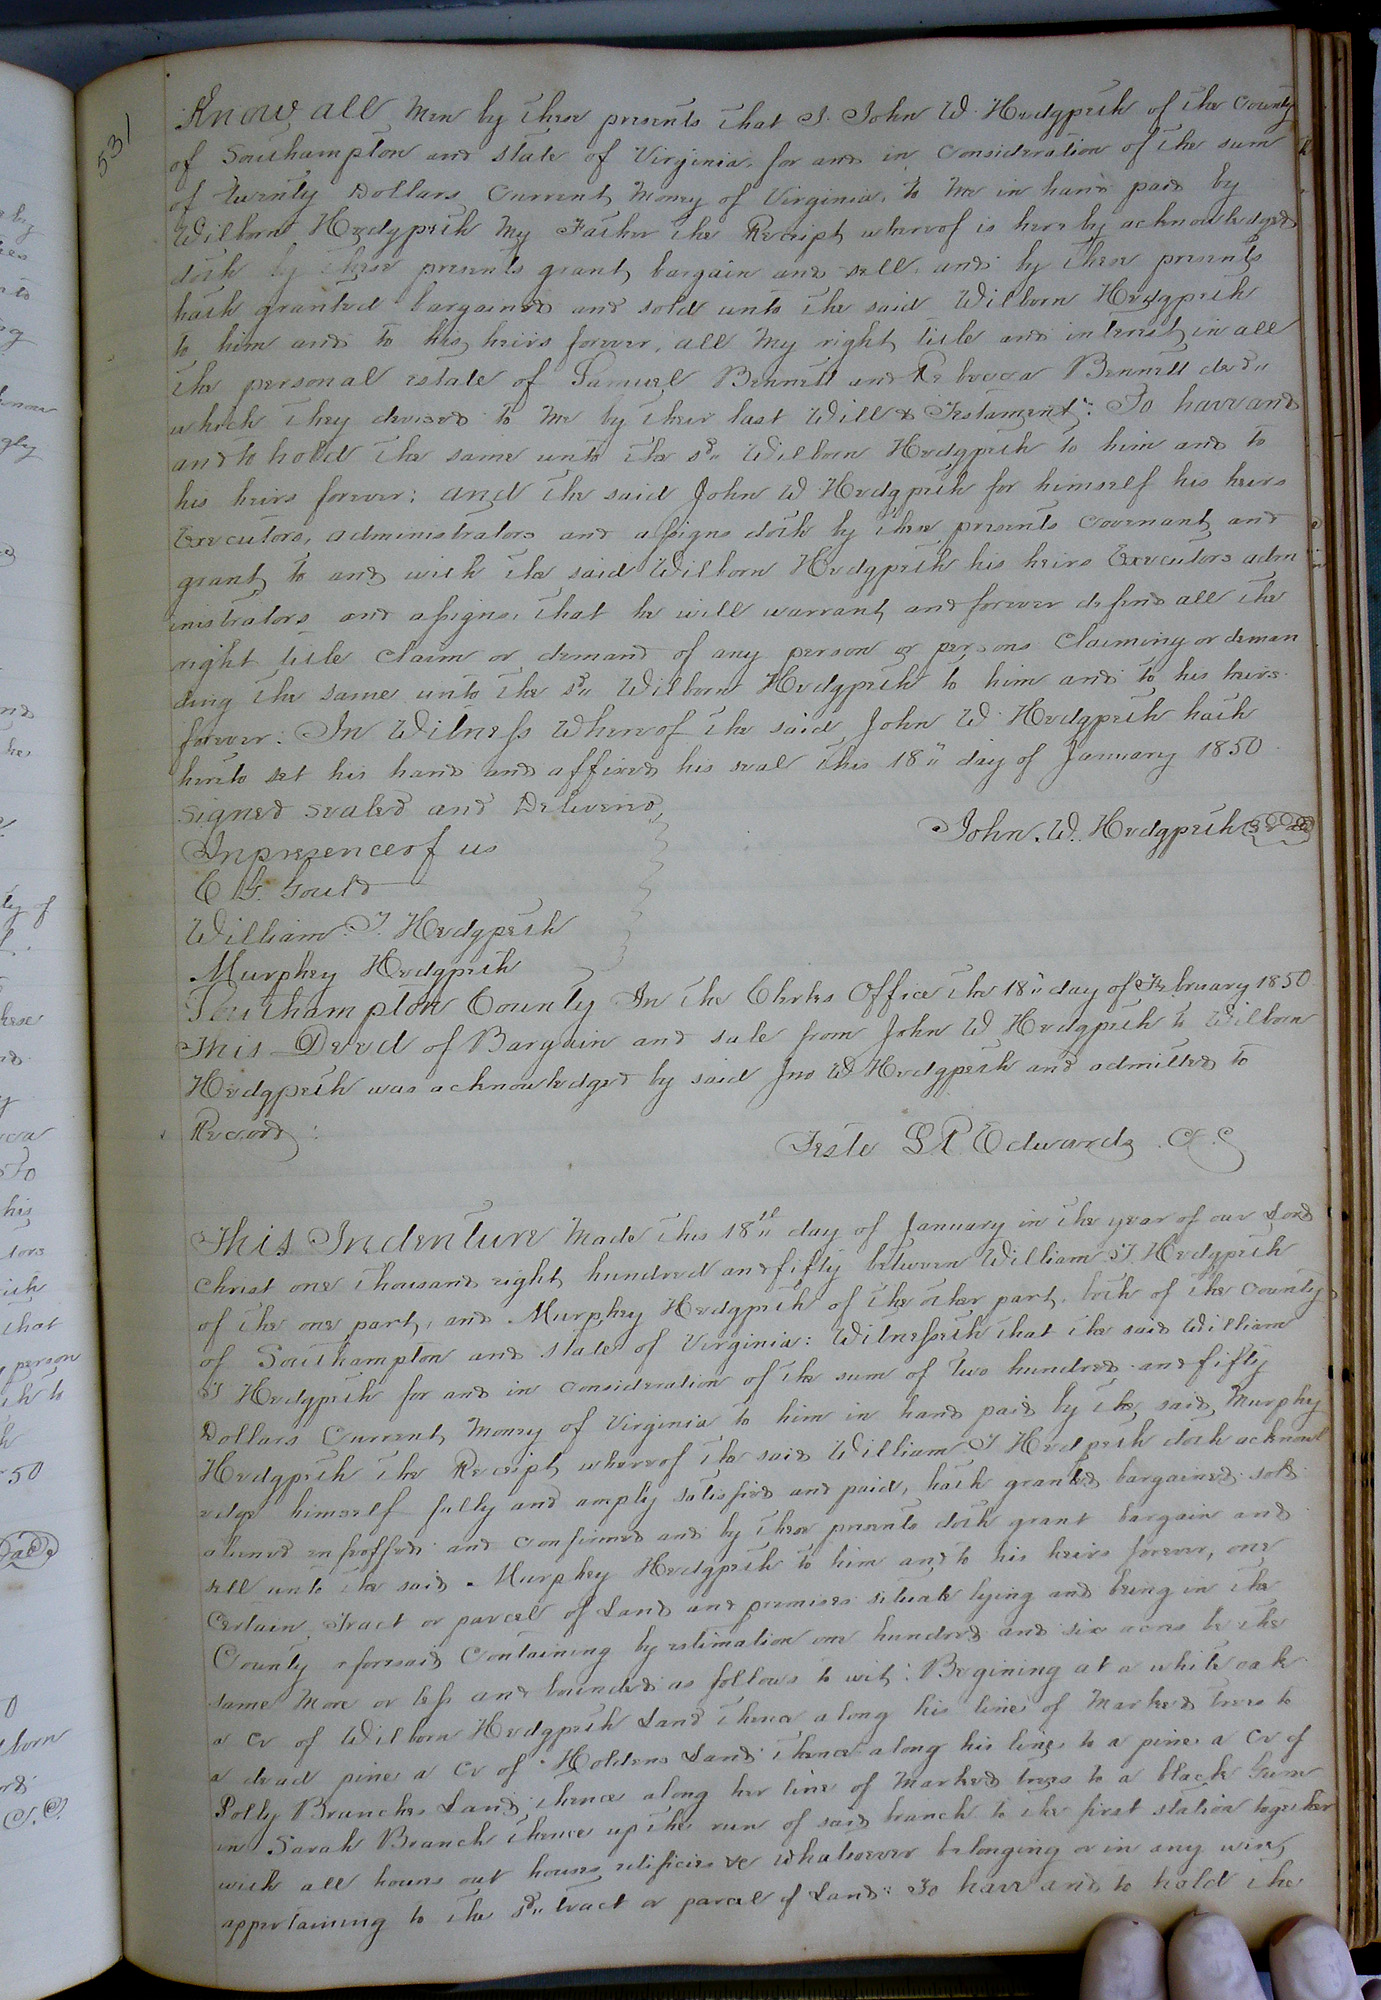 531
Know all Men by these presents that I John W. Hedgpeth of the County
of Southampton and state of Virginia, for and in consideration of the sum
of twenty Dollars Current Money of Virginia, to me in hand paid by
Wilborn Hedgpeth My Father the Receipt whereof is hereby acknowledged
doth by these presents grant, bargain and sell and by these presents
hath granted bargained and sold unto the said Wilborn Hedgpeth
to him and to his heirs forever, all My right title and interest in all
the personal estate of Samuel Bennett and Rebecca Bennett decd"
which they devised to Me by their last Will & Testament: To have and
and to hold the same unto the sd" Wilborn Hedgpeth to him and to
his heirs forever: and the said John W Hedgpeth for himself his heirs
Executors, administrators and assigns doth by these presents Covenant and
grant to and with the said Wilborn Hedgpeth his heirs Executors adm
inistrators and assigns, that he will warrant and forever defend all the
right title claim or demand of any person or persons Claiming or deman
ding the same unto the sd" Wilborn Hedgpeth to him and to his heirs
forever: In Witness Whereof the said John W. Hedgpeth hath
hereto set his hand and affixed his seal this 18" day of January 1850
signed sealed and Delivered
In presence of us
John. W. Hedgpeth Seal
C G. Gould
William. T. Hedgpeth
Murphey Hedgpeth
Southampton County In the Clerks Office the 18" day of February 1850
This Deed of Bargain and sale from John W Hedgpeth to Wilborn
Hedgpeth was acknowledged by said Jno W Hedgpeth and admitted to
Record:
Teste L R Edwards C.C
This Indenture Made this 18th day of January in the year of our Lord
Christ one thousand eight hundred and fifty between William T. Hedgpeth
of the one part, and Murphey Hedgpeth of the other part, both of the County
of Southampton and state of Virginia: Witnesseth that the said William
T Hedgpeth for and in consideration of the sum of two hundred and fifty
Dollars Current Money of Virginia to him in hand paid by the said Murphy
Hedgpeth the Receipt whereof the said William T Hedpeth doth acknowl
edge himself fully and amply satisfied and paid, hath granted bargained sold
aliened enfeoffed and confirmed and by these presents doth grant bargain and
sell unto the said Murphey Hedgpeth to him and to his heirs forever, one
Certain Tract or parcel of Land and premises situate lying and being in the
County aforesaid Containing by estimation one hundred and six acres be the
same More or less and bounded as follows to wit: Begining at a white oak
a Cr of Wilborn Hedgpeth Land thence along his line of Marked trees to
a dead pine a Cr of Holdens Land thence along his line to a pine a Cr of
Polly Branches Land thence along her line of Marked trees to a black Gum
in Sarah Branch thence up the run of said branch to the first station together
with all houses out houses edificies &c Whatsoever belonging or in any wise
appertaining to the sd" tract or parcel of Land: To have and to hold the